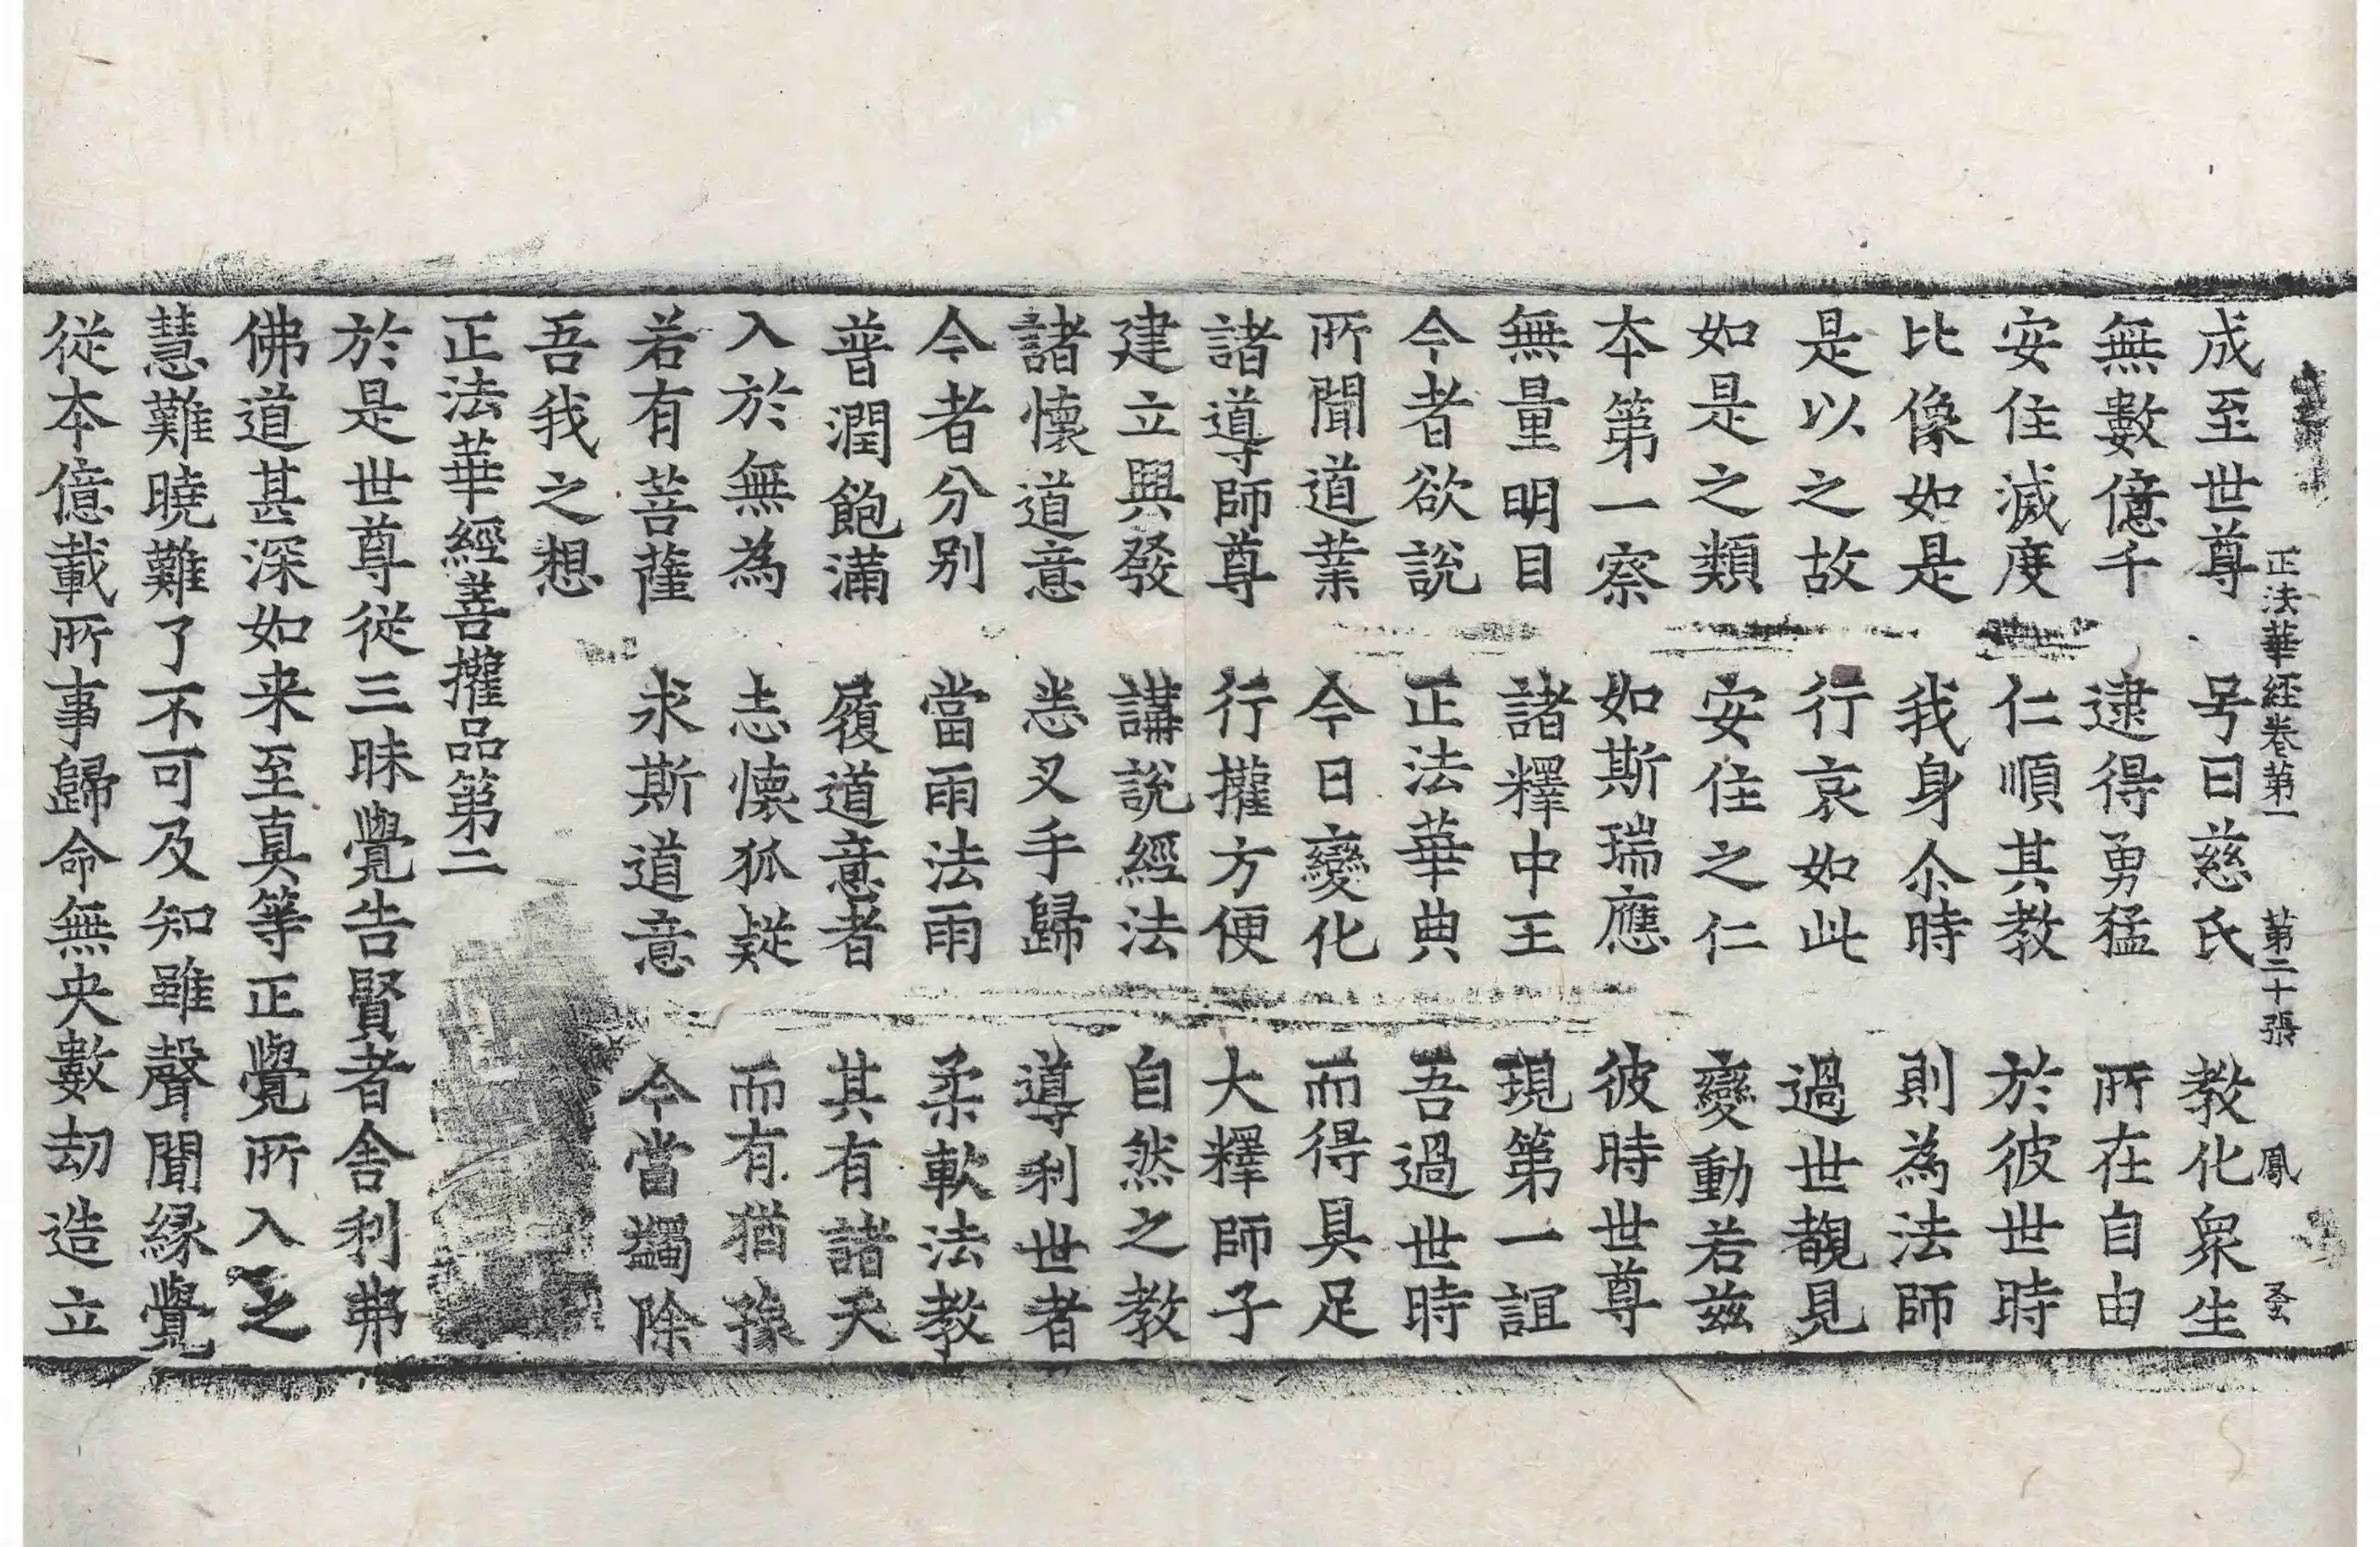 正法華經卷第一　第二十張　鳳
成至世尊　号曰慈氏　教化衆生
無數億千　逮得勇猛　所在自由
安住滅度　仁順其教　於彼世時
比像如是　我身尒時　則為法師
是以之故　行哀如此　過世覩見
如是之類　安住之仁　變動若兹
本第一察　如斯瑞應　彼時世尊
無量明目　諸釋中王　現第一誼
今者欲說　正法華典　吾過世時
所聞道業　今日變化　而得具足
諸導師尊　行權方便　大釋師子
建立興發　講說經法　自然之教
諸懷道意　悉叉手歸　導利世者
今者分别　當雨法雨　柔軟法教
普潤飽滿　履道意者　其有諸天
入於無為　志懷狐疑　而有猶豫
若有菩薩　求斯道意　今當蠲除
吾我之想
正法華經善權品第二
於是世尊從三昧覺告賢者舎利弗
佛道甚深如来至真等正覺所入之
慧難曉難了不可及知雖聲聞縁覺
從本億載所事歸命無央數劫造立